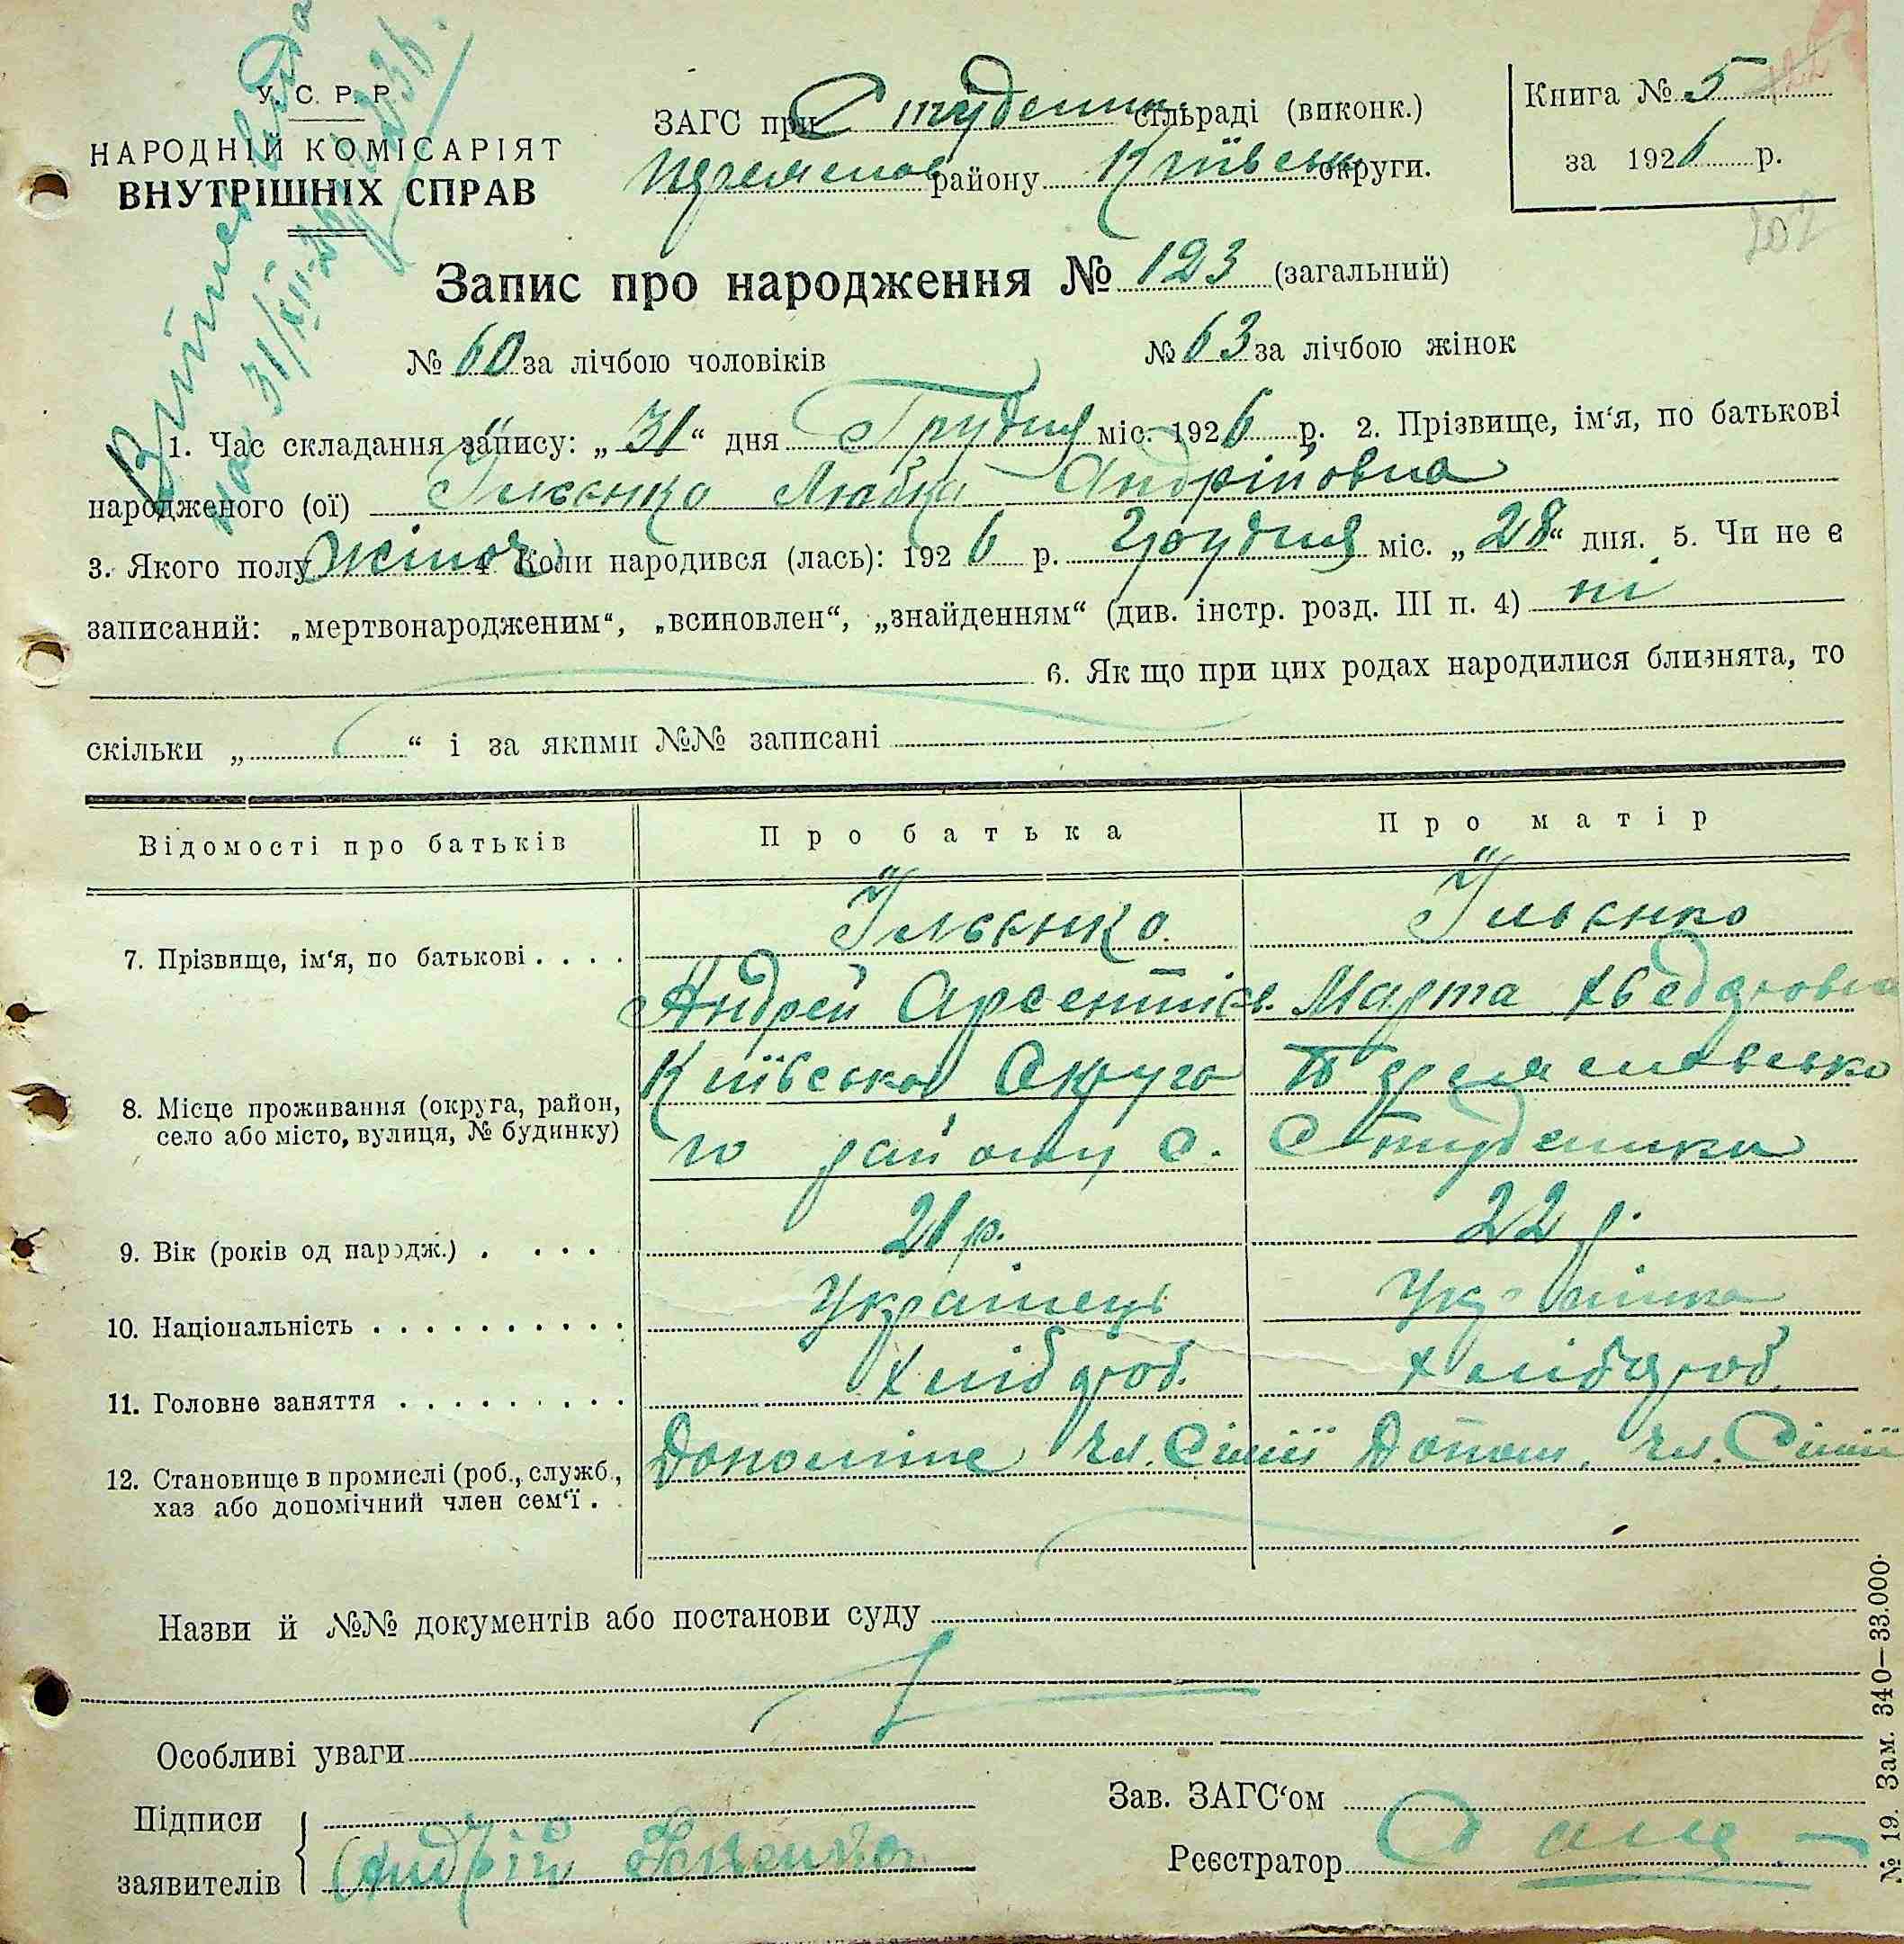 У. С. Р. Р.
НАРОДНІЙ КОМІСАРІЯТ
ВНУТРІШНІХ СПРАВ
ЗАГС при Студеник. сільраді (виконк.)
району Київськ округи.
Книга № 5
за 1926 р.
202
Запис про народження № 123 (загальний)
№ 60 за лічбою чоловіків
№ 63 за лічбою жінок
на 31/XII-26
1. Час складання запису: „31“ дня Грудня міс. 1926 р. 2. Прізвище, ім‘я, по батькові
народженого (ої) Ільєнко Любка Андрійовна
3. Якого полу жіноч 4. Коли народився (лась): 1926 р. Грудня міс. „28“ дня. 5. Чи не є
записаний: „мертвонародженим“, „всиновлен“, „знайденням“ (див. інстр. розд. III п. 4) ні
6. Як що при цих родах народилися близнята, то
скільки „ “ і за якими №№ записані
Відомості про батьків
Про батька
Про матір
7. Прізвище, ім‘я, по батькові
Ільєнко
Андрей Арсентієв.
Ільєнко
Марта Хведоровна
8. Місце проживання (округа, район,
село або місто, вулиця, № будинку)
Київська Округа Переяславсько
го району с. Студеники
9. Вік (років од народж.)
21 р.
22 р.
10. Національність
Українець
Українка
11. Головне заняття
Хлібороб.
Хлібороб.
12. Становище в промислі (роб., служб.,
хаз або допомічний член сем‘ї .
Допоміжне чл. Сімії
Допом. чл. Сімії
Назви й №№ документів або постанови суду
Особливі уваги
Підписи
заявителів
Андрій
Зав. ЗАГС‘ом
Реєстратор
№ 19 Зам. 340—33.000.